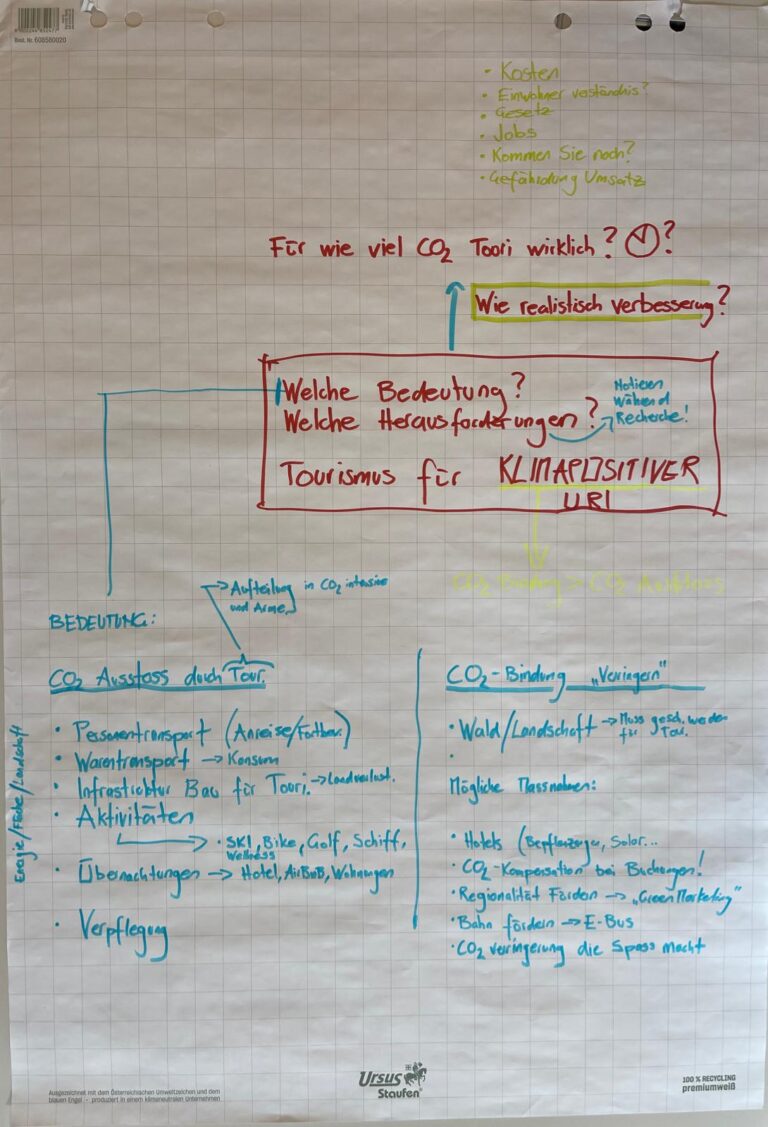 Best. Nr. 608580020
• Kosten
• Einwohner verständnis?
• Gesetz
• Jobs
• Kommen Sie noch?
• Gefährdung Umsatz
Für wie viel CO2 Toori wirklich? ?
Wie realistisch verbesserung?
Welche Bedeutung?
Welche Herausforderungen?
Notieren
Während
Recherche!
Tourismus für KLIMAPOSITIVER
URI
CO2-Bindung > CO2 Ausstoss
→ Aufteilung in CO2 intensive
und Arme
BEDEUTUNG:
CO2 Ausstoss durch Tour.
Energie/Fläche/Landschaft
• Personentransport (Anreise/Fortbew.)
• Warentransport → Konsum
• Infrastruktur Bau für Toori. → Landverlust.
• Aktivitäten
→ • SKI, Bike, Golf, Schiff,
Wellness
• Übernachtungen → Hotel, AirBnB, Wohnungen
• Verpflegung
CO2-Bindung „Veringern"
• Wald/Landschaft → Muss gesch. werden
für Tour.
•
Mögliche Massnahmen:
• Hotels (Bepflanzungen, Solar...
• CO2-Kompensation bei Buchungen!
• Regionalität Fördern → „Green Marketing"
• Bahn fördern → E-Bus
• CO2 veringerung die Spass macht
Ausgezeichnet mit dem Österreichischen Umweltzeichen und dem
blauen Engel - produziert in einem klimaneutralen Unternehmen
Ursus
Staufen
100 % RECYCLING
premiumweiß